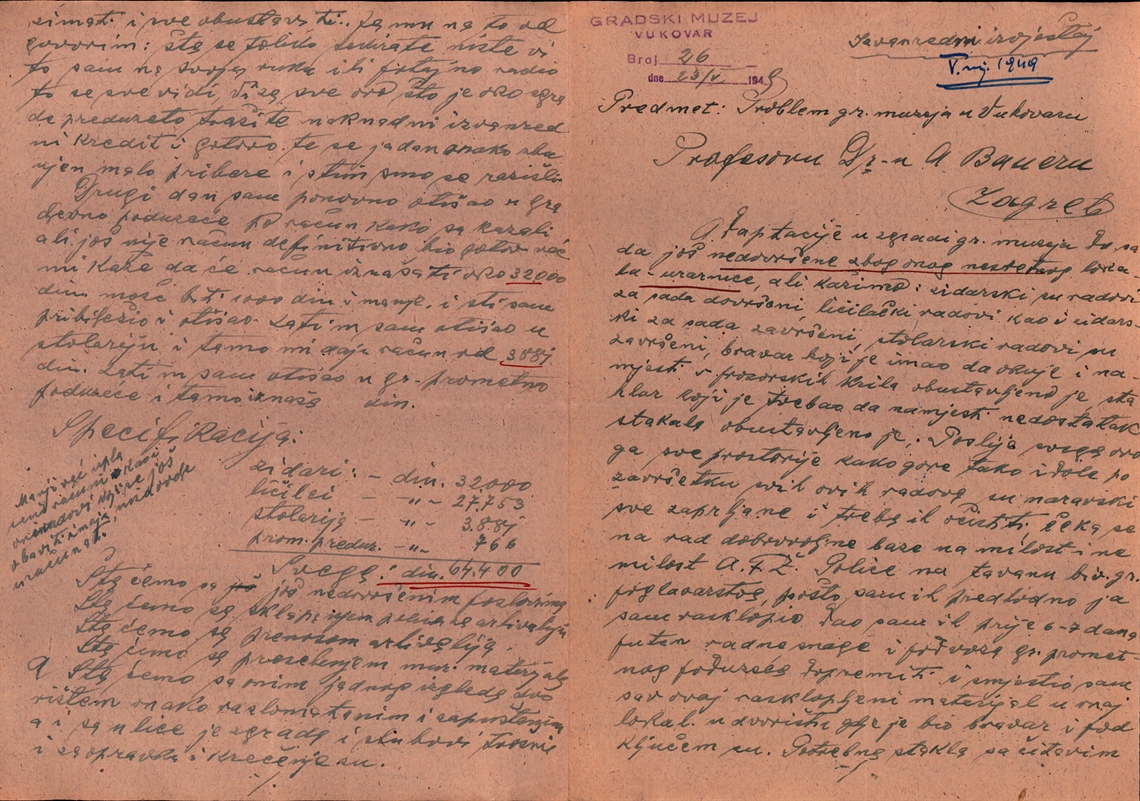 zimati i sve obustaviti. Ja mu na to od
govorim: šta se toliko nervirate niste vi
to sami na svoju ruku ili potajno radio
to se sve vidi. Visa sve ovo što je oko zgra
de preduzeto tražite naknadni izvanred
ni kredit i gotovo. te se jadan onako zbu
njen malo pribere i s tim smo se razišli
Drugi dan sam ponovno otišao u gra
đevno poduzeće po račun kako su kazali
ali još nije račun definitivno bio gotov već
mi kaže da će račun iznašati oko 32000
din. moć biti 1000 din i manje. i sti sam
pribilježio i otišao. Zatim sam otišao u
stolariju i tamo mi daju račun od 3.881
din. Zatim sam otišao u gr. prometno
poduzeće i tamo iznaša din.
Specifikacija:
zidari: - din. 32.000
ličilci - -"- 27.753
stolarija - -"- 3.881
prom. preduz. - -"- 766
Svega: din. 64.400
Manji već upla
ćeni računi kao i
oni radovi koji se još
obaviti imaju, nisu ovdje
uračunati.
Šta ćemo sa još nedovršenim poslovima
Šta ćemo sa sklapanjem polica za arhivaliju
Šta ćemo sa prenosom arhivalija
Šta ćemo sa preseljenjem muz. materijala
A šta ćemo sa onim jadnog izgleda dvo
rištem onako razlomatanim i zapuštenim
a i sa ulice je zgrada i stubovi trošni
i za opravak i krečenje su.
GRADSKI MUZEJ
VUKOVAR
Broj 26
dne 23/V. 1949
Izvanredni izvještaj
V. mj. 1949
Predmet: Problem gr. muzeja u Vukovaru
Profesoru Dr-u A Baueru
Zagreb
Adaptacije u zgradi gr. muzeja do sa
da još nedovršene zbog onog nesretnog loka
la-urarnice, ali kažimo: zidarski su radovi
za sada dovršeni, ličilački radovi kao i zidars
ki za sada završeni, stolarski radovi su
završeni, bravar koji je imao da okuje i na
mjesti 5 prozorskih krila obustavljeno je sta
klar koji je trebao da namjesti nedostatak
stakala obustavljeno je. Poslije svega ovo
ga sve prostorije kako gore tako i dole po
završetku svih ovih radova su naravski
sve zaprljane i treba ih očistiti, čeka se
na rad dobrovoljne baze na milost i ne
milost A.F.Ž. Police na tavanu biv. gr.
poglavarstva, pošto sam ih predhodno ja
sam rasklopio dao sam ih prije 6-7 dana
putem radne snage i podvoza gr. promet
nog poduzeća dopremiti i smjestio sam
sav ovaj rasklopljeni materijal u onaj
lokal u dvorištu gdje je bio bravar i pod
ključem su. Potrebna stakla sa čitavim